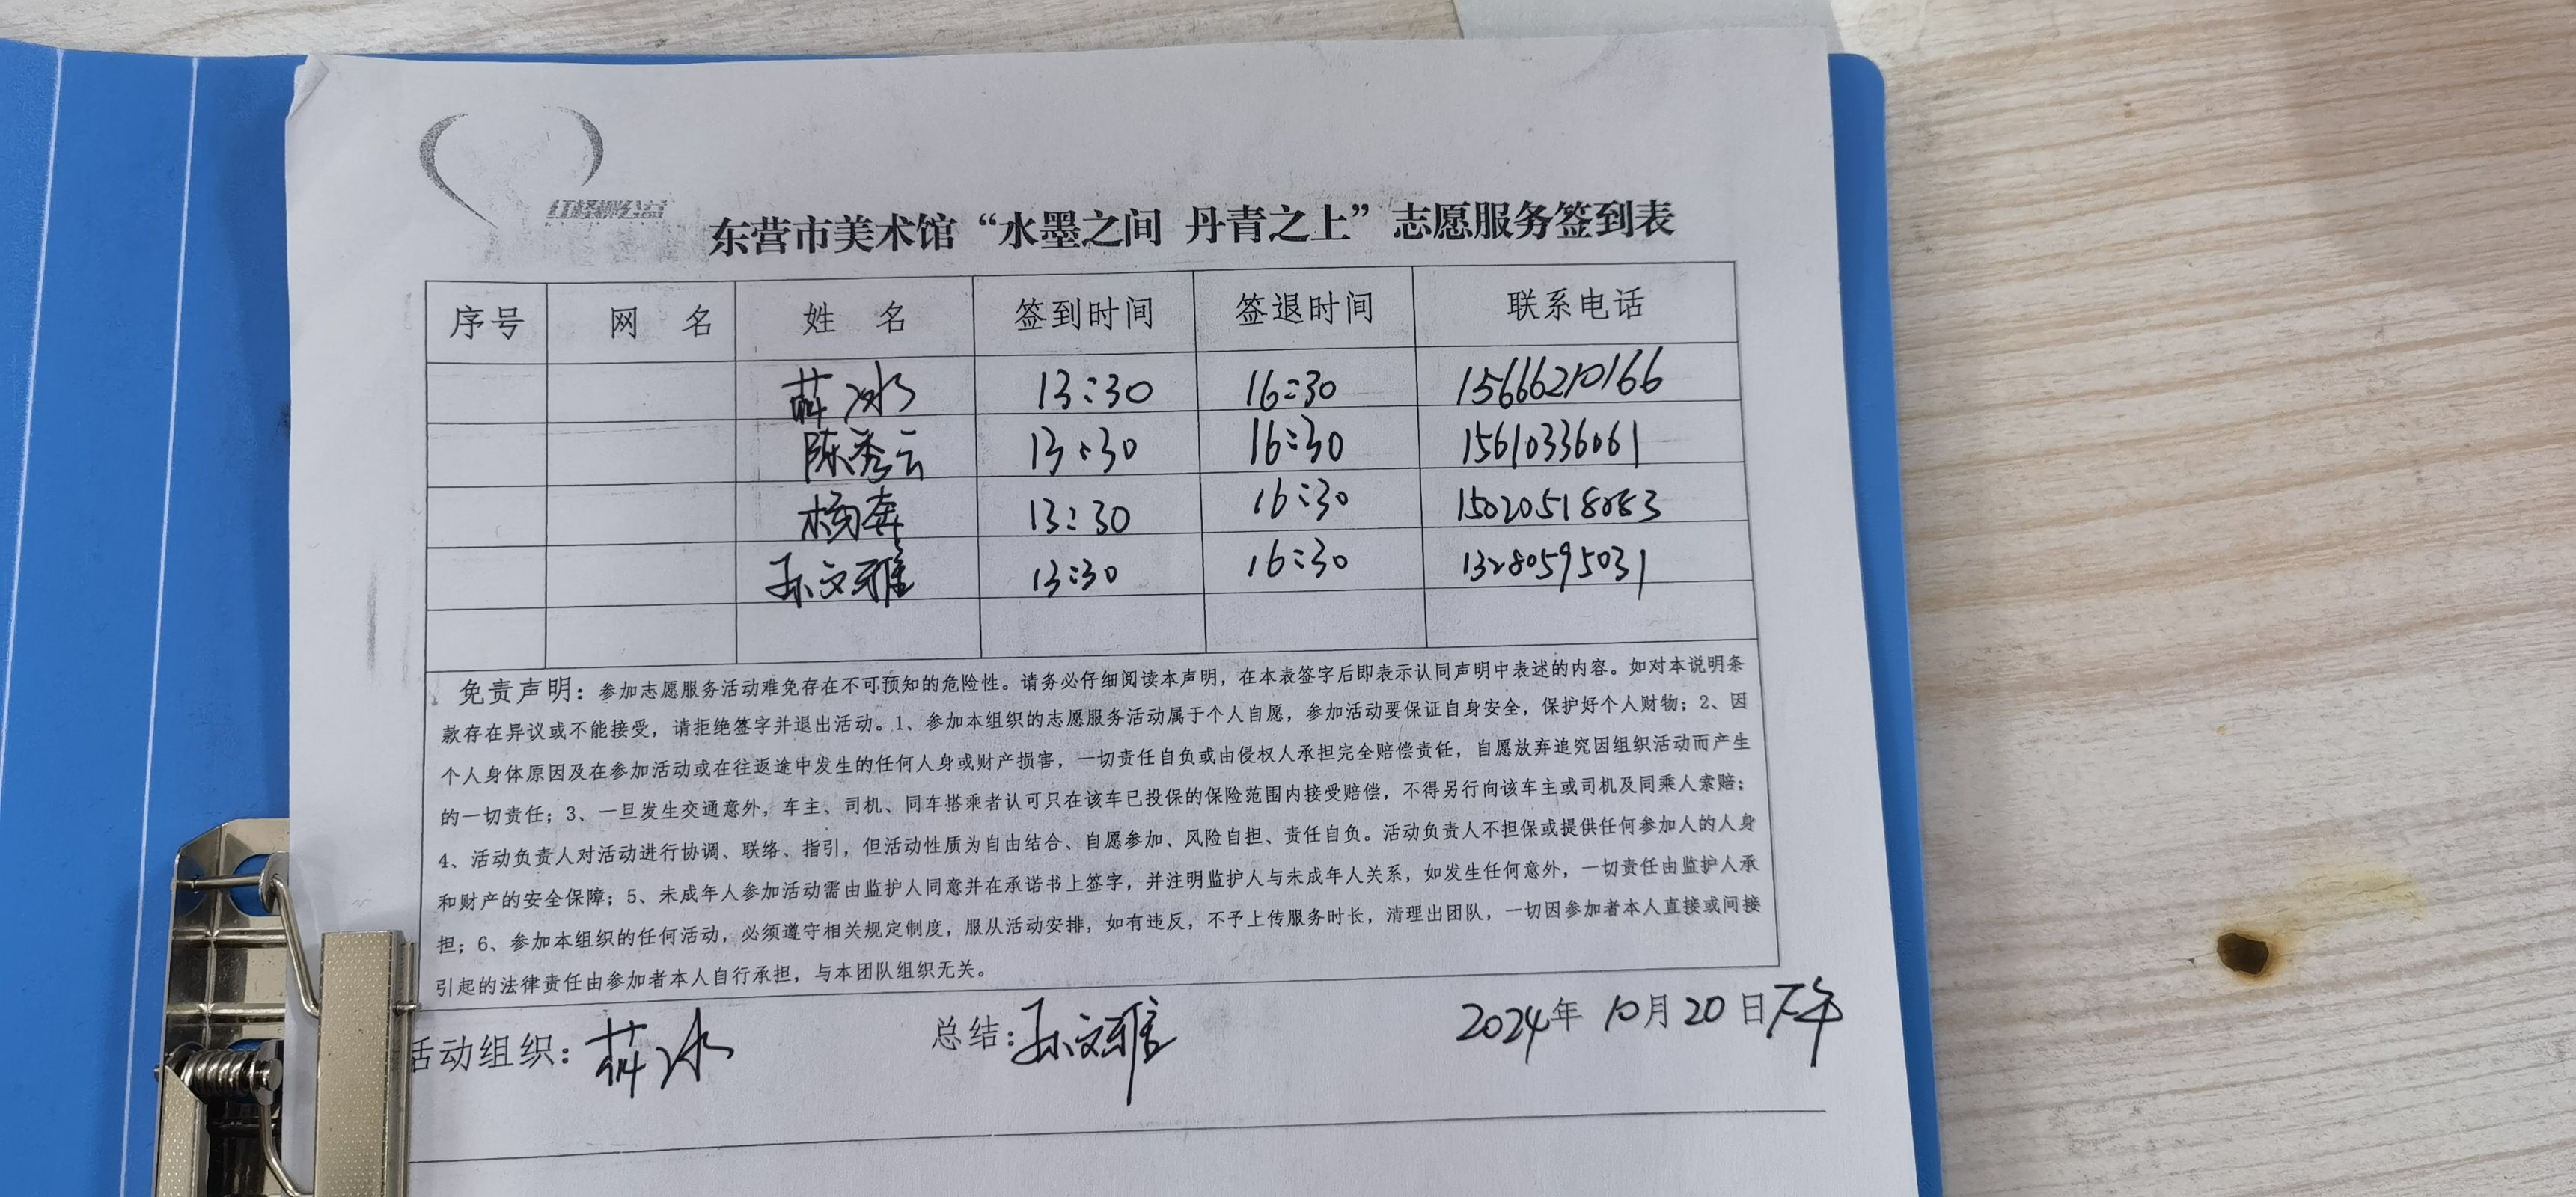 红柽柳公益
东营市美术馆“水墨之间 丹青之上”志愿服务签到表
序号 网 名 姓 名 签到时间 签退时间 联系电话
薛冰 13:30 16:30 15666210166
陈秀云 13:30 16:30 15610336061
杨奔 13:30 16:30 15020518083
孙文雅 13:30 16:30 13280595031
免责声明：参加志愿服务活动难免存在不可预知的危险性。请务必仔细阅读本声明，在本表签字后即表示认同声明中表述的内容。如对本说明条
款存在异议或不能接受，请拒绝签字并退出活动。1、参加本组织的志愿服务活动属于个人自愿，参加活动要保证自身安全，保护好个人财物；2、因
个人身体原因及在参加活动或在往返途中发生的任何人身或财产损害，一切责任自负或由侵权人承担完全赔偿责任，自愿放弃追究因组织活动而产生
的一切责任；3、一旦发生交通意外，车主、司机、同车搭乘者认可只在该车已投保的保险范围内接受赔偿，不得另行向该车主或司机及同乘人索赔；
4、活动负责人对活动进行协调、联络、指引，但活动性质为自由结合、自愿参加、风险自担、责任自负。活动负责人不担保或提供任何参加人的人身
和财产的安全保障；5、未成年人参加活动需由监护人同意并在承诺书上签字，并注明监护人与未成年人关系，如发生任何意外，一切责任由监护人承
担；6、参加本组织的任何活动，必须遵守相关规定制度，服从活动安排，如有违反，不予上传服务时长，清理出团队，一切因参加者本人直接或间接
引起的法律责任由参加者本人自行承担，与本团队组织无关。
活动组织：薛冰 总结：孙文雅 2024年 10月 20日下午